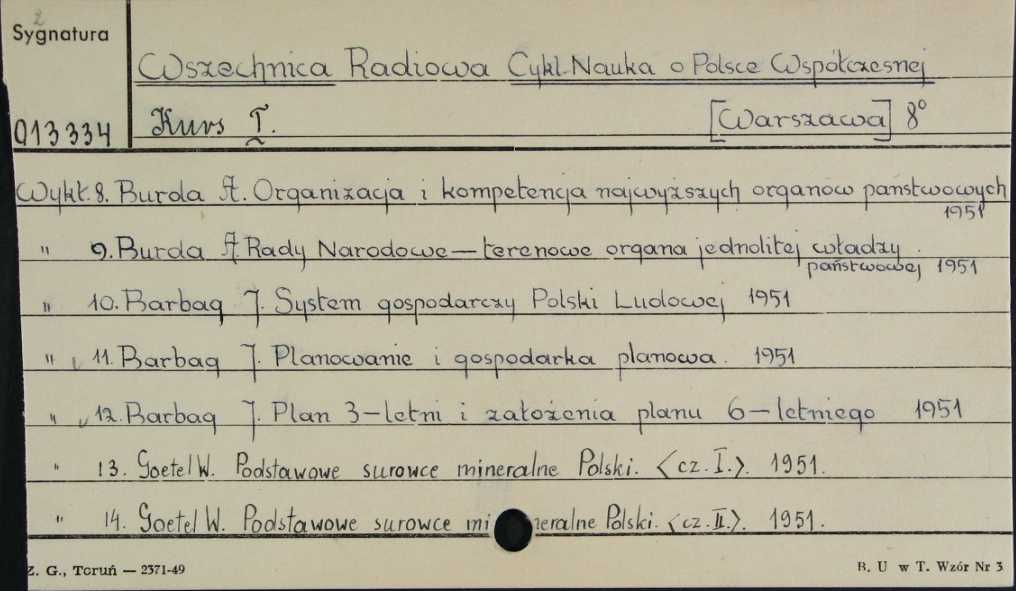 2
Sygnatura
Wszechnica Radiowa Cykl-Nauka o Polsce Współczesnej
013334 Kurs I. [Warszawa] 8°
Wykł. 8. Burda A. Organizacja i kompetencja najwyższych organów państwowych
1951
" 9. Burda A. Rady Narodowe — terenowe organa jednolitej władzy
państwowej 1951
" 10. Barbag J. System gospodarczy Polski Ludowej 1951
" 11. Barbag J. Planowanie i gospodarka planowa. 1951
" 12. Barbag J. Plan 3-letni i założenia planu 6-letniego 1951
" 13. Goetel W. Podstawowe surowce mineralne Polski. <cz. I.>. 1951.
" 14. Goetel W. Podstawowe surowce mineralne Polski. <cz. II.>. 1951.
Z. G., Toruń — 2371-49 B. U w T. Wzór Nr 3